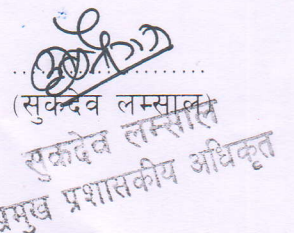 (सुकदेव लम्साल)
सुकदेव लम्साल
प्रमुख प्रशासकीय अधिकृत